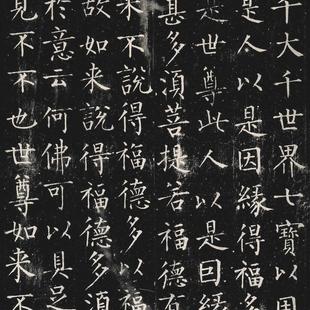 千大千世界七寶以用
是人以是因緣得福多
是世尊此人以是囙緣
甚多湏菩提若福德有
来不說得福德多以福
故如来說得福德多湏
於意云何佛可以具足
見不不也世尊如来不